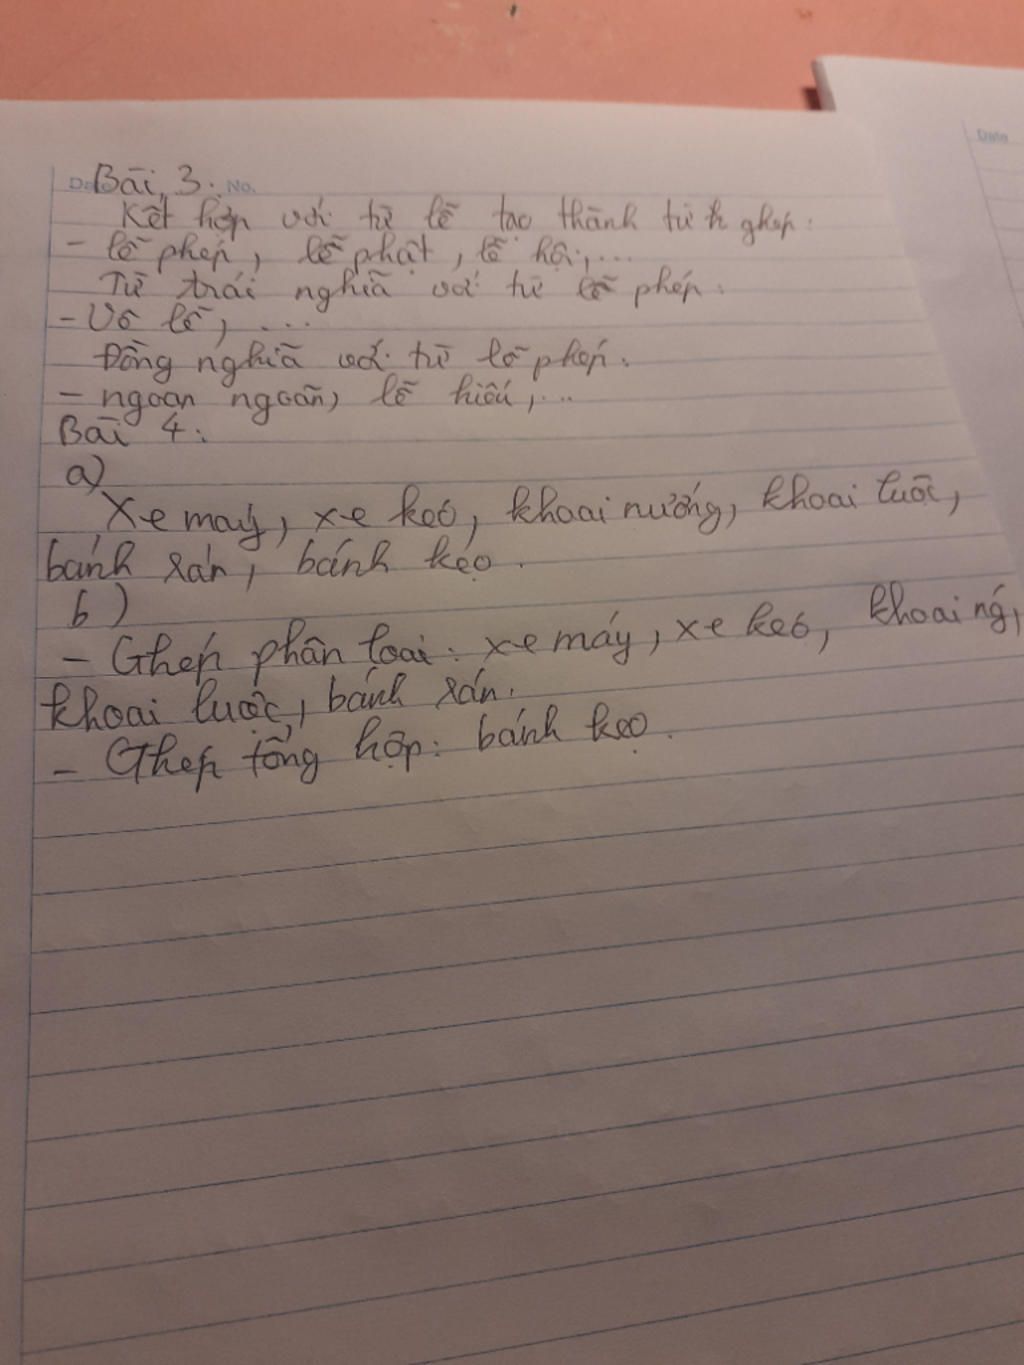 Bài 3:
Kết hợp với từ lễ tạo thành từ ghép:
- lễ phép, lễ phật, lễ hội,...
Từ trái nghĩa với từ lễ phép:
- Vô lễ, ...
Đồng nghĩa với từ lễ phép:
- ngoan ngoãn, lễ hiếu,...
Bài 4:
a)
Xe máy, xe kéo, khoai nướng, khoai luộc,
bánh rán, bánh kẹo.
b)
- Ghép phân loại: xe máy, xe kéo, khoai
khoai luộc, bánh rán.
- Ghép tổng hợp: bánh kẹo.
Date